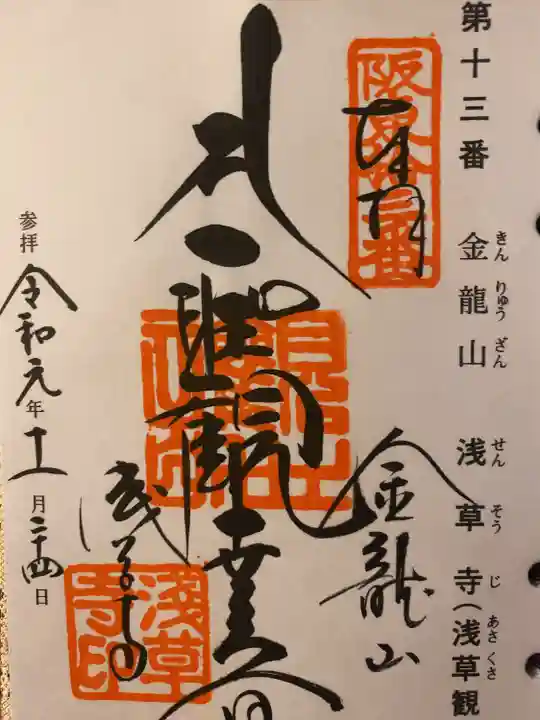 第十三番 金龍山 浅草寺(浅草観
きん りゅう ざん せん そう じ あさ くさ
奉拝
金龍山
聖観世音
浅草寺
浅草寺印
参拝 令和元年十一月二十四日